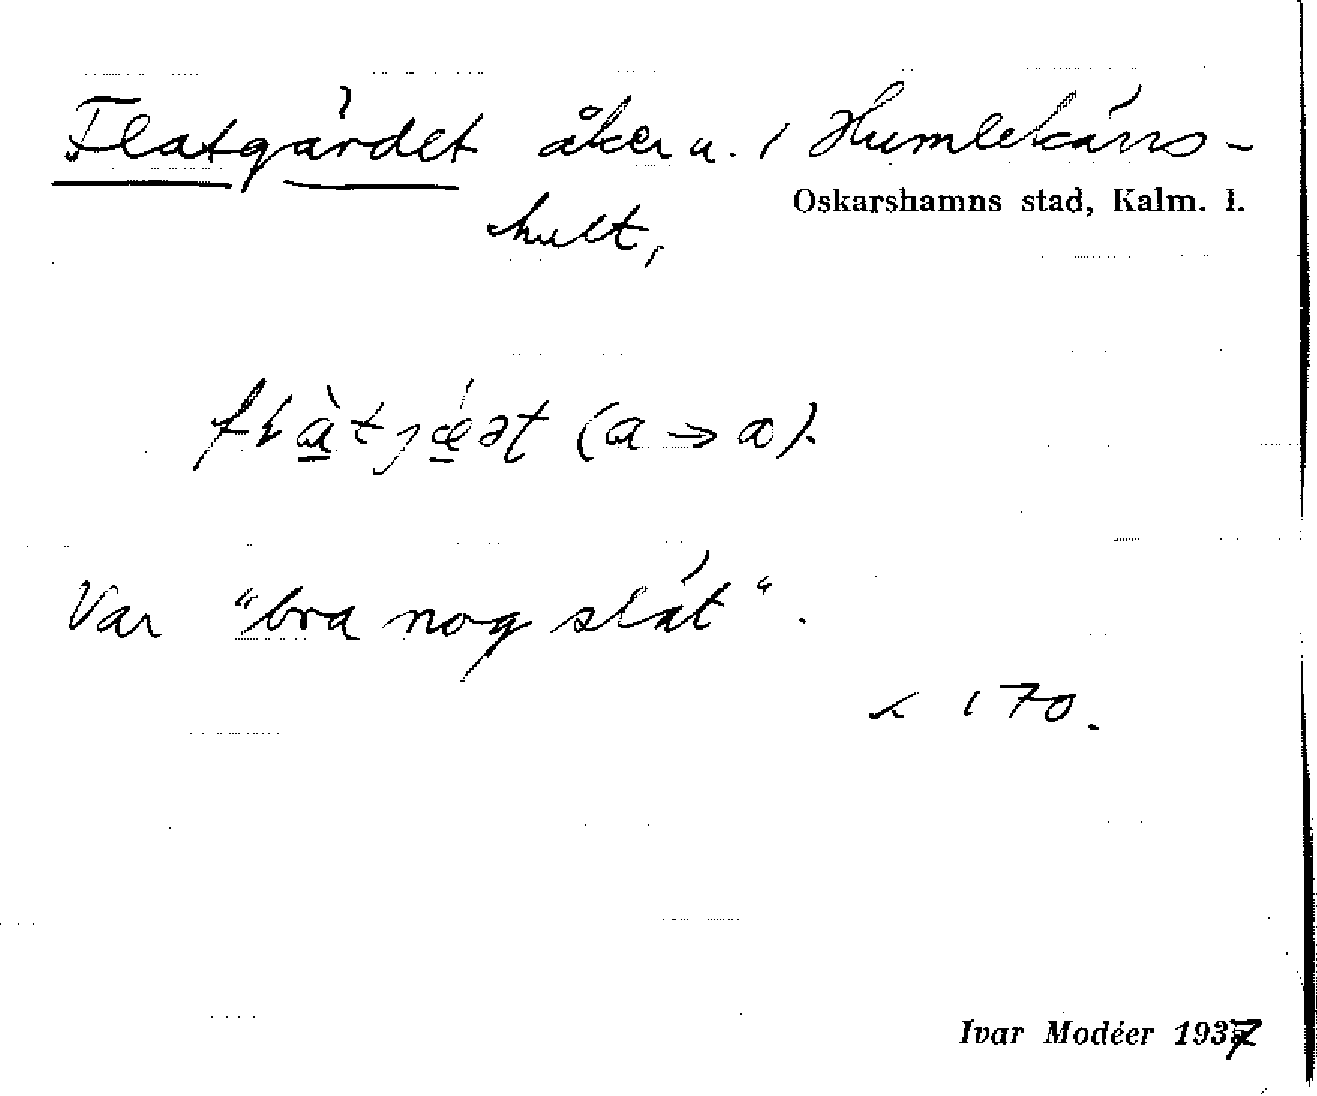 Flatgärdet åker u. i Humlekärrs-
Oskarshamns stad, Kalm. l.
hult,
(a → ɑ).
Var "bra nog slät".
170.
Ivar Modéer 1937